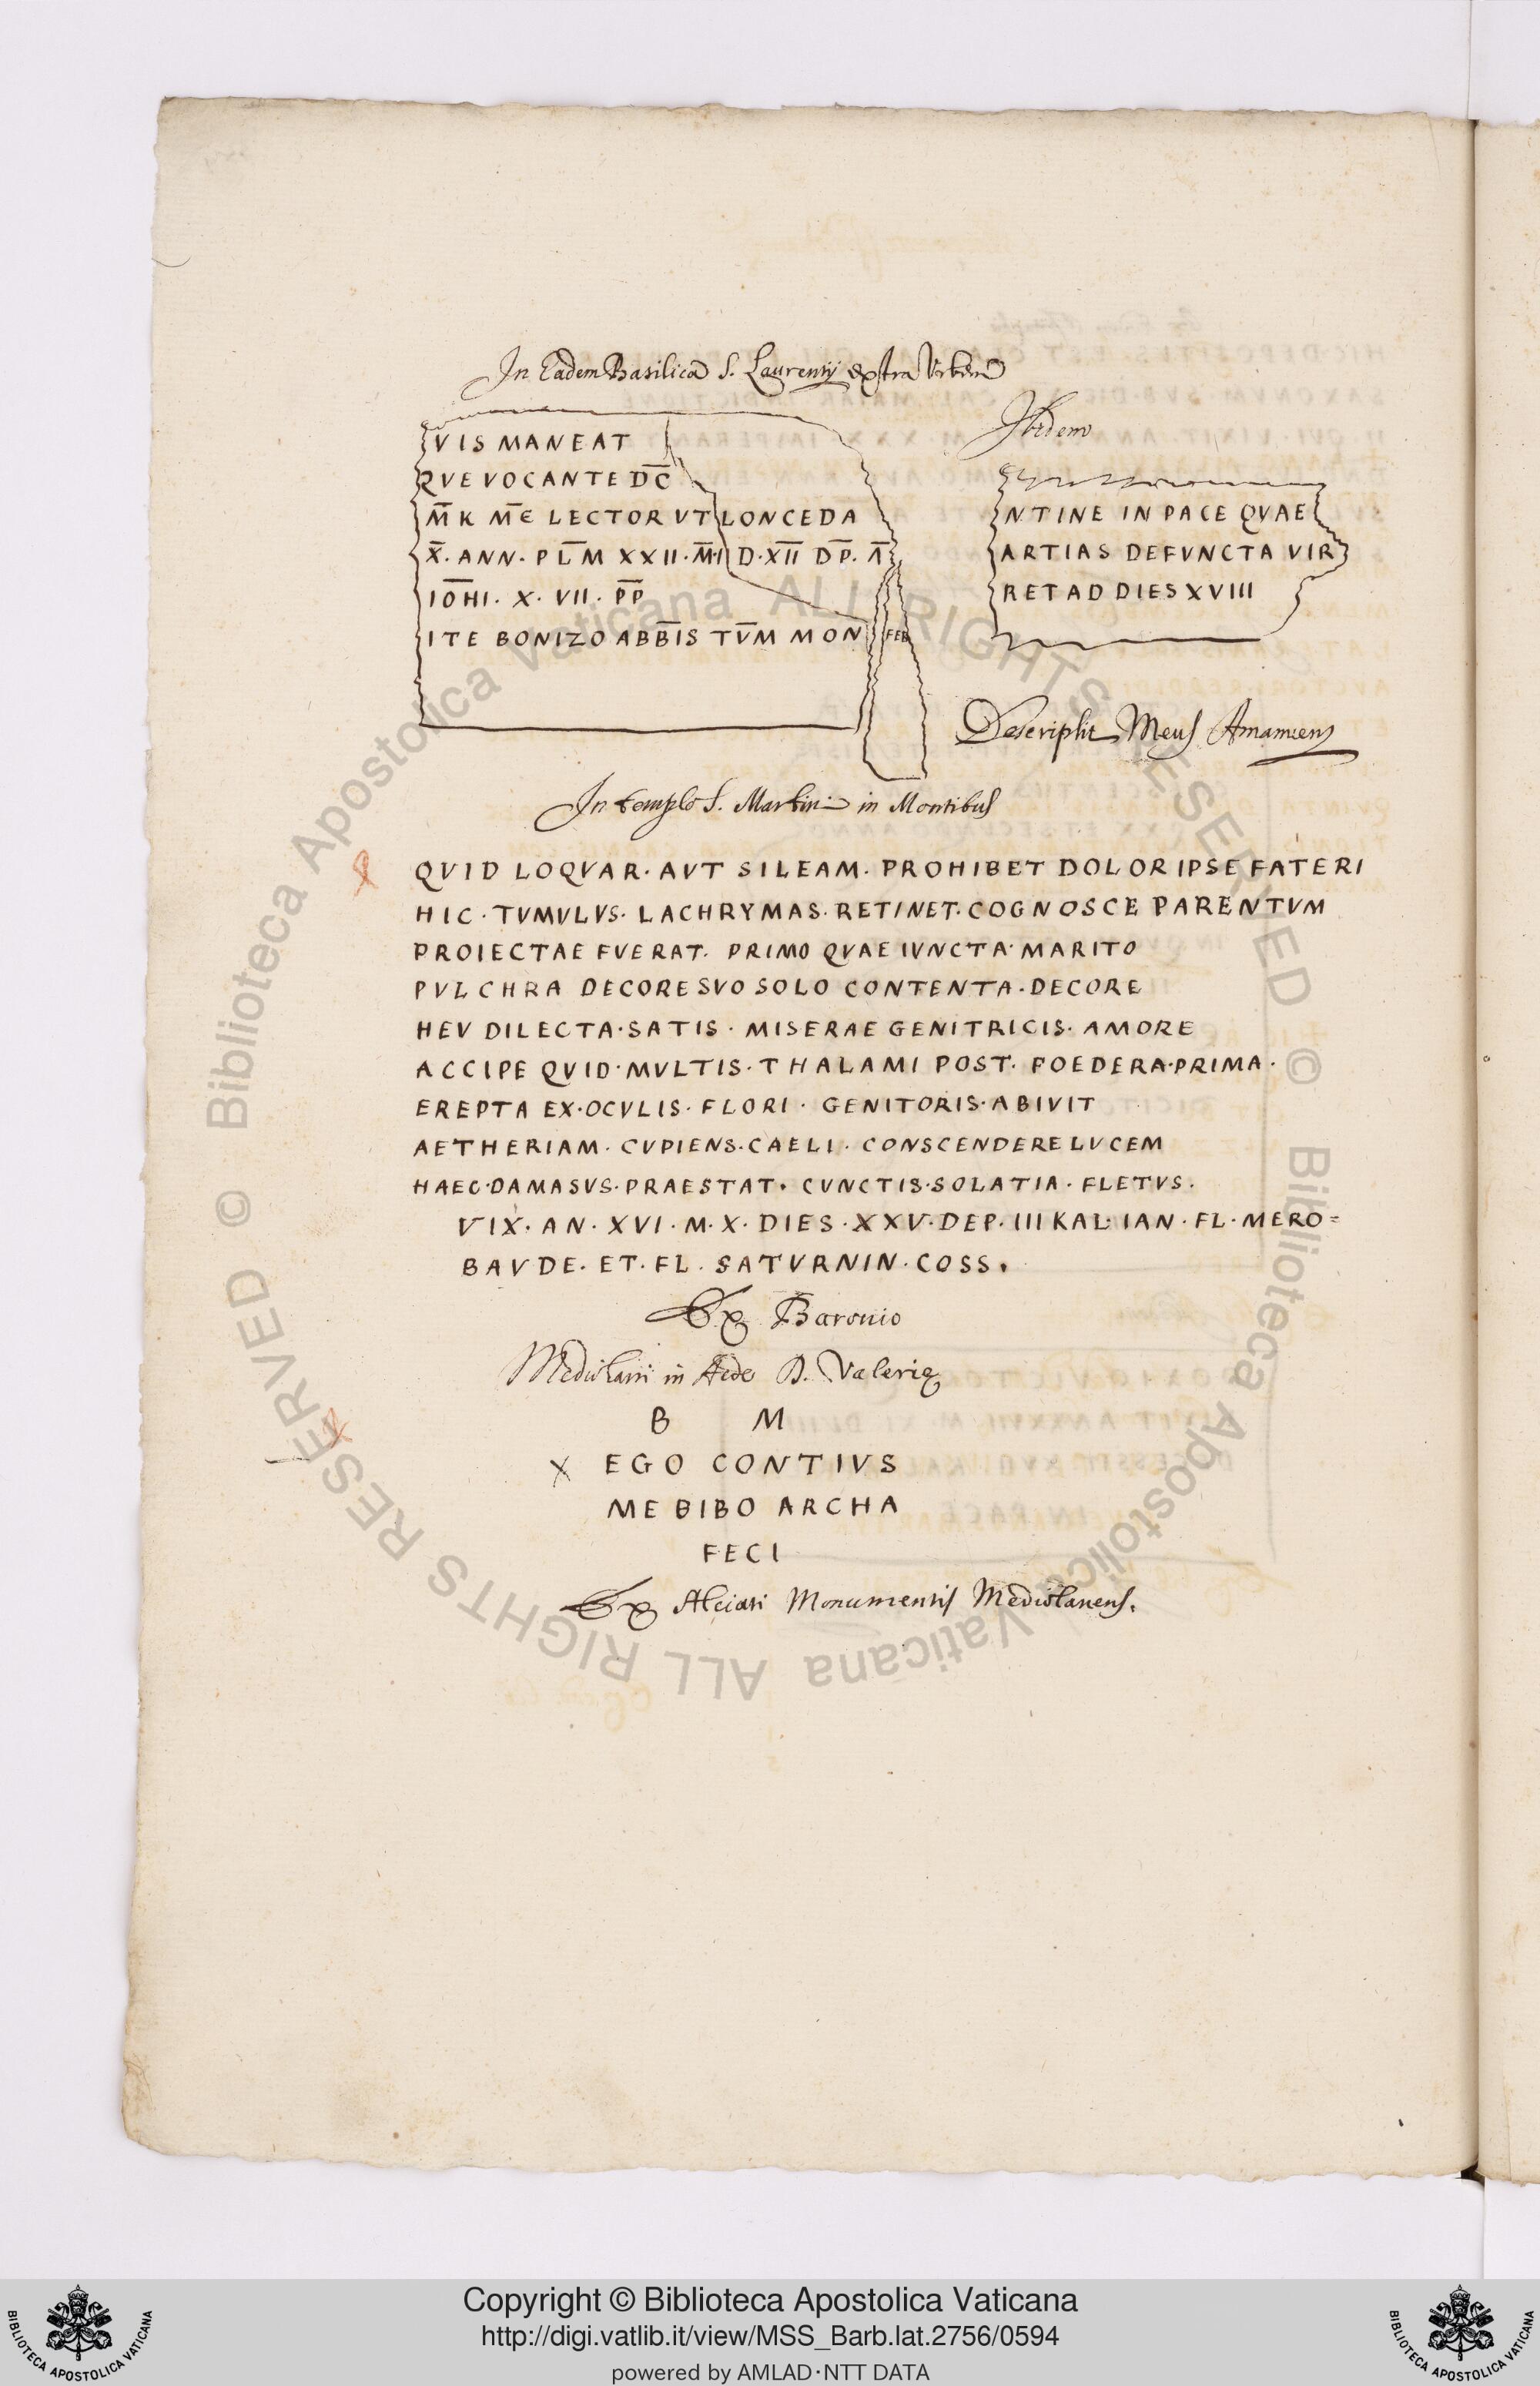 In Eadem Basilica S. Laurentij extra Urbem
VIS MANEAT
QVE VOCANTE D̄C̄
M̄K M̄Є LECTOR VT LONCEDA
X̄. ANN. PL̄M XXII. M̄.I D.X̄ĪĪ D̄P̄. Λ̄
IŌHI. X. VII. P̄P̄
ITE BONIZO ABB̄IS TV̄M MON FEB
Ibidem
NTINE IN PACE QVAE
ARTIAS DEFVNCTA VIR
RET AD DIES XVIII
Descripsit Meus Amanuens
In templo S. Martini in Montibus
QVID LOQVAR. AVT SILEAM. PROHIBET DOLOR IPSE FATERI
HIC. TVMVLVS. LACHRYMAS. RETINET. COGNOSCE PARENTVM
PROIECTAE FVERAT. PRIMO QVAE IVNCTA. MARITO
PVLCHRA DECORE SVO SOLO CONTENTA. DECORE
HEV DILECTA. SATIS. MISERAE GENITRICIS. AMORE
ACCIPE QVID. MVLTIS. THALAMI POST. FOEDERA. PRIMA.
EREPTA EX. OCVLIS. FLORI. GENITORIS. ABIVIT
AETHERIAM. CVPIENS. CAELI. CONSCENDERE LVCEM
HAEC. DAMASVS. PRAESTAT. CVNCTIS. SOLATIA. FLETVS.
VIX. AN. XVI. M. X. DIES. XXV. DEP. III KAL. IAN. FL. MERO=
BAVDE. ET. FL. SATVRNIN. COSS.
Ex Baronio
Mediolani in Aede D. Valerię
B M
X EGO CONTIVS
ME BIBO ARCHA
FECI
Ex Alciati Monumentis Mediolanens.
Copyright © Biblioteca Apostolica Vaticana
http://digi.vatlib.it/view/MSS_Barb.lat.2756/0594
powered by AMLAD·NTT DATA
BIBLIOTECA APOSTOLICA VATICANA
BIBLIOTECA APOSTOLICA VATICANA
© Biblioteca Apostolica Vaticana ALL RIGHTS RESERVED © Biblioteca Apostolica Vaticana ALL RIGHTS RESERVED